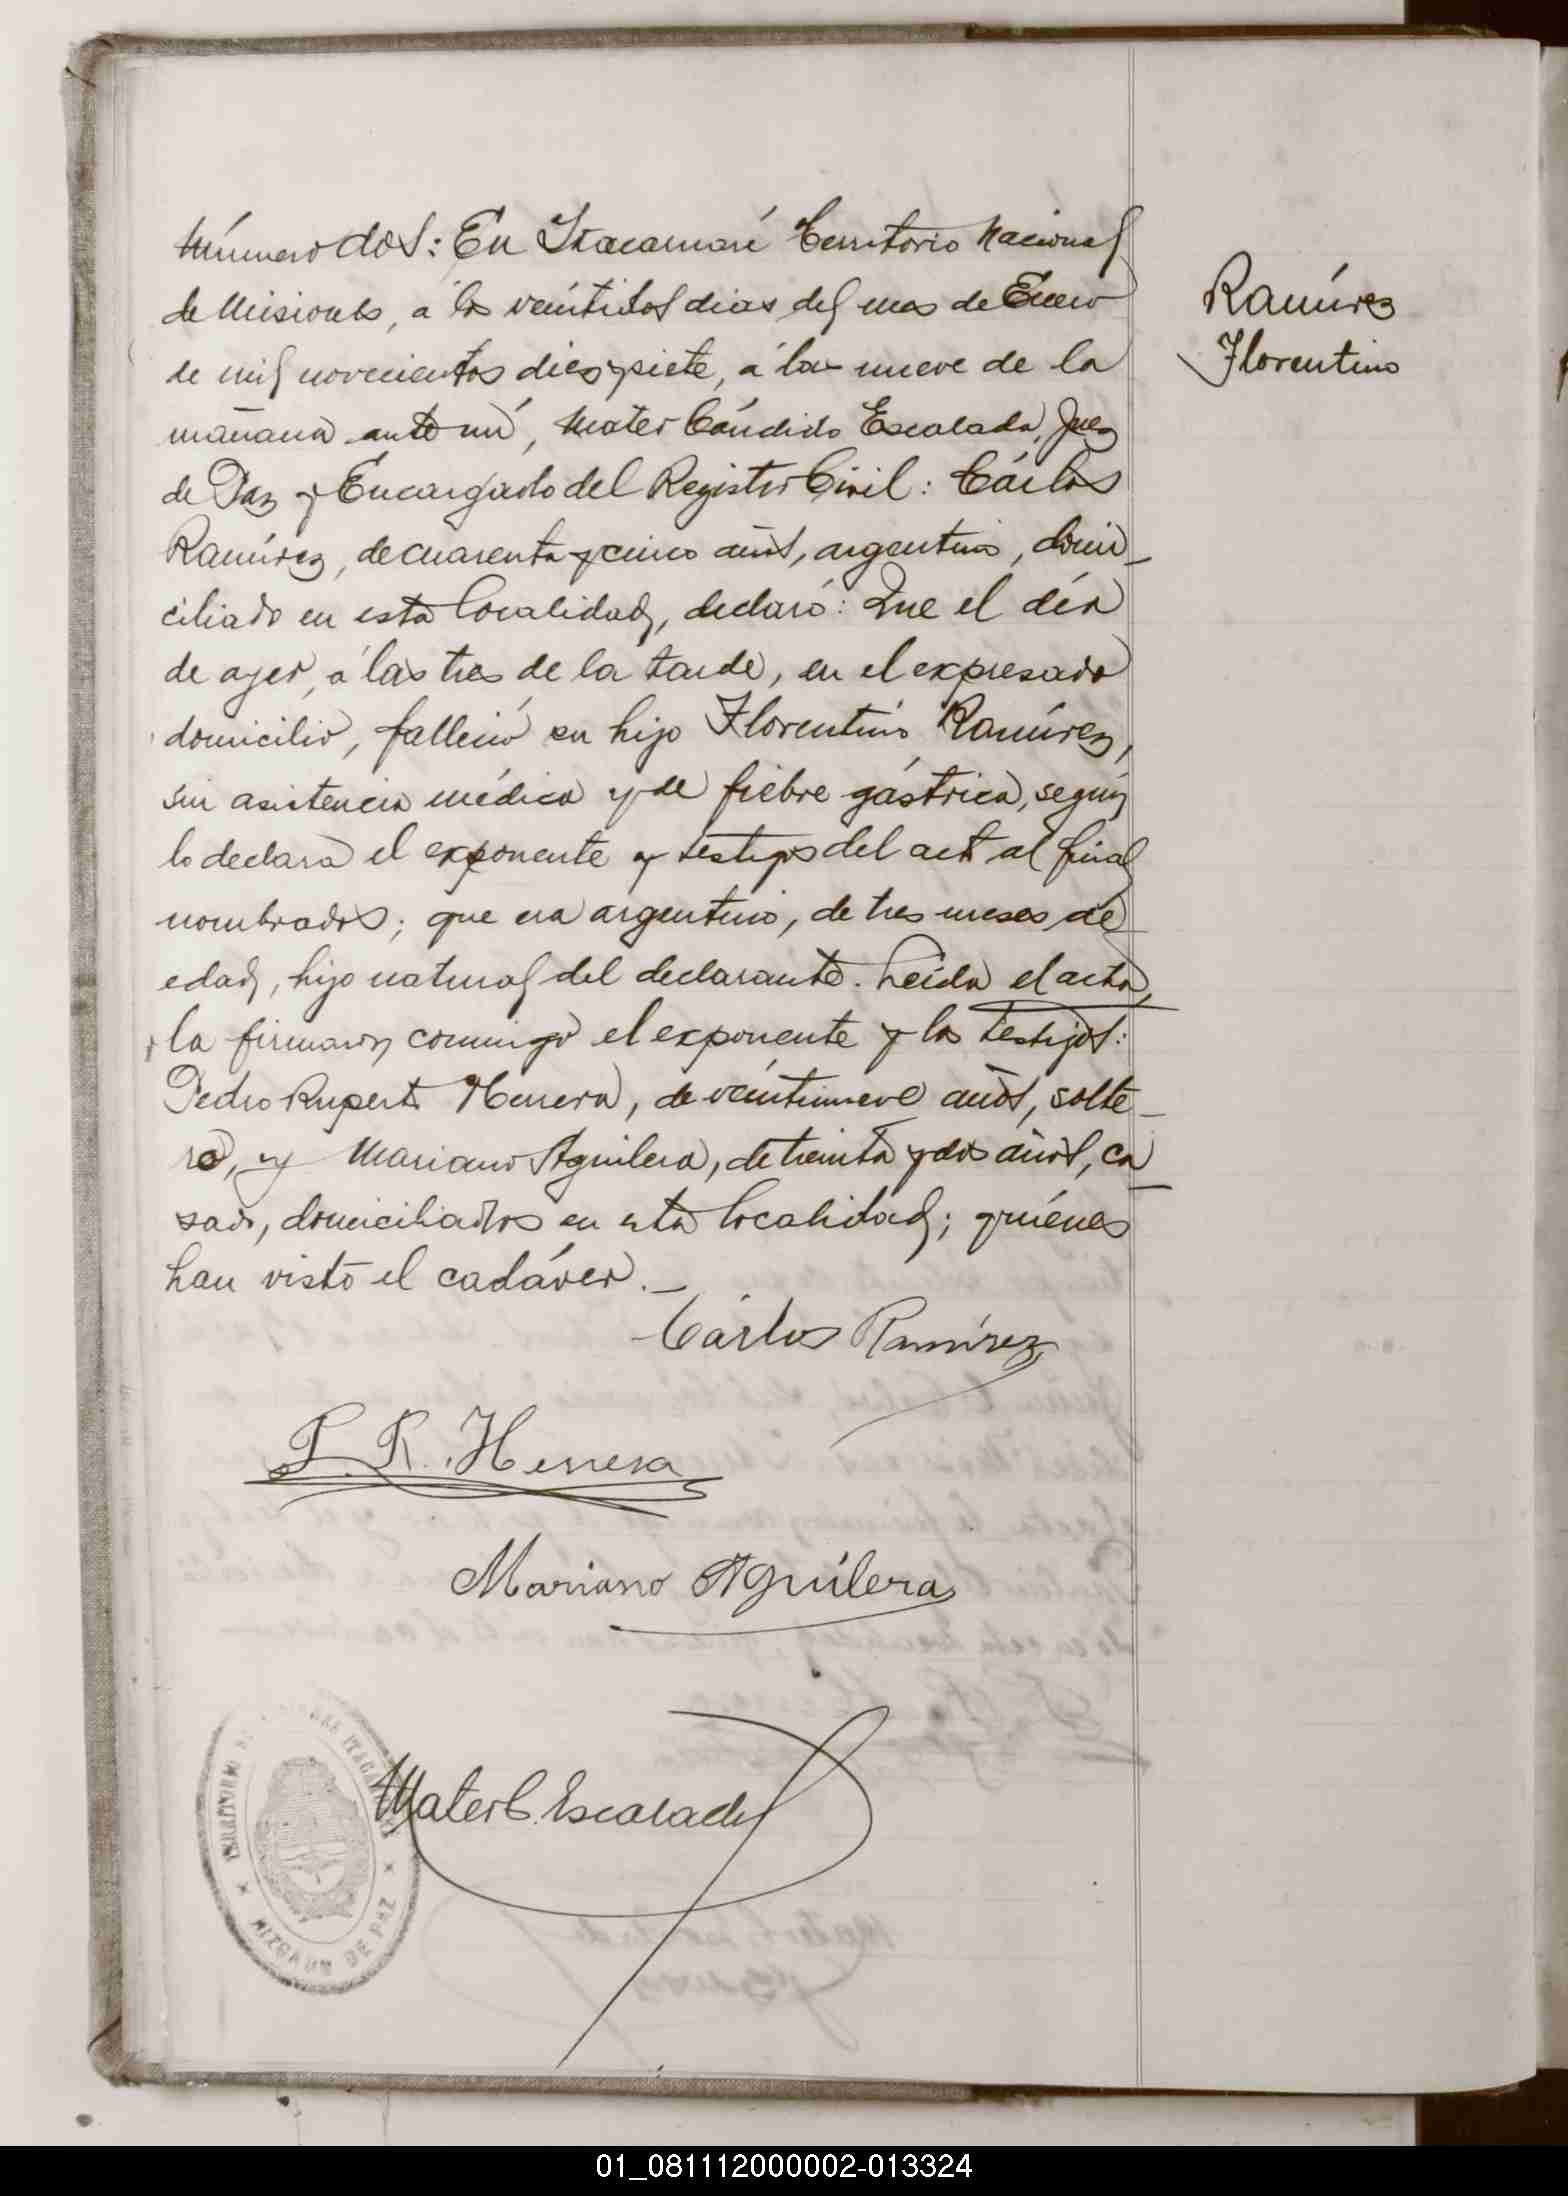 Número dos: En Itacaruaré Territorio Nacional
de Misiones, á los veintidos dias del mes de Enero
de mil novecientos diez y siete, á las nueve de la
mañana ante mí, Mater Cándido Escalada, Juez
de Paz y Encargado del Registro Civil: Cárlos
Ramírez, de cuarenta y cinco años, argentino, domi-
ciliado en esta localidad, declaró: Que el día
de ayer, á las tres de la tarde, en el expresado
domicilio, falleció su hijo Florentino Ramírez,
sin asistencia médica y de fiebre gástrica, según
lo declara el exponente y testigos del acto al final
nombrados; que era argentino, de tres meses de
edad, hijo natural del declarante. Leída el acta,
la firmaron conmigo el exponente y los testigos:
Pedro Ruperto Herrera, de veintinueve años, solte-
ro, y Mariano Aguilera, de treinta y dos años, ca
sado, domiciliados en esta localidad; quiénes
han visto el cadáver.—
Cárlos Ramírez
P. R. Herrera
Mariano Aguilera
Mater C. Escalada
JUZGADO DE PAZ
Ramírez
Florentino
01_081112000002-013324